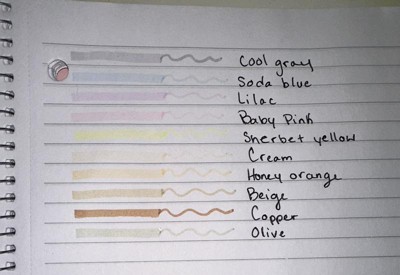 Cool gray
Soda blue
Lilac
Baby Pink
Sherbet yellow
Cream
Honey orange
Beige
Copper
Olive